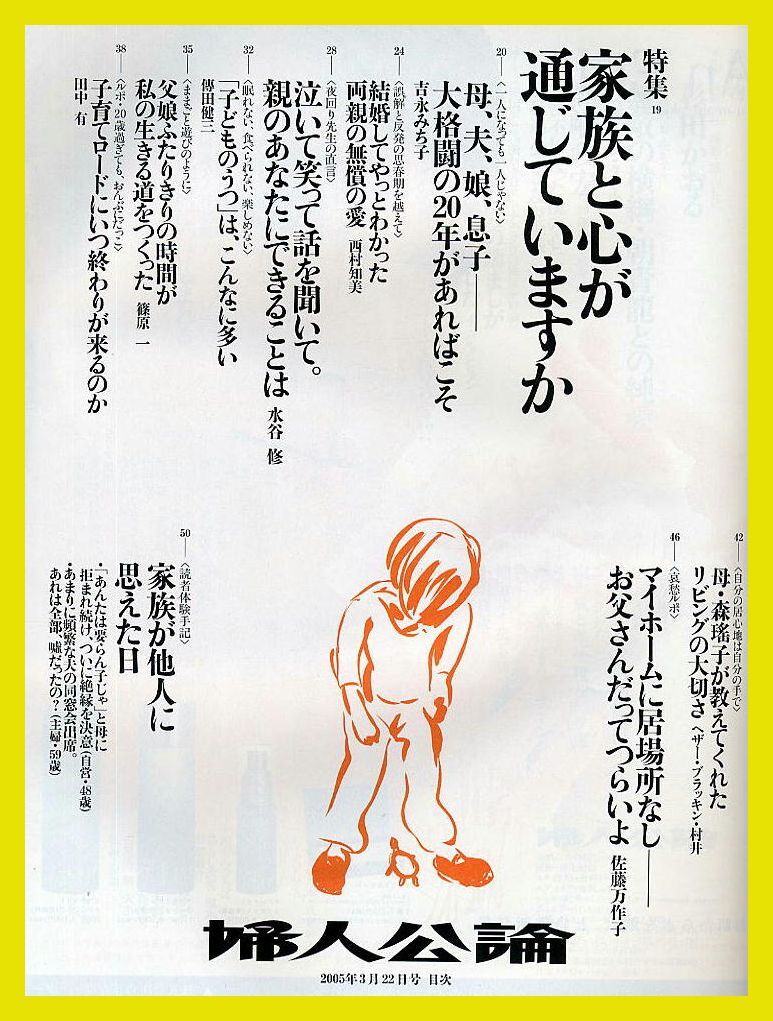 特集 19
家族と心が
通じていますか
20──〈一人になっても一人じゃない〉
母、夫、娘、息子──
大格闘の20年があればこそ
吉永みち子
24──〈誤解と反発の思春期を越えて〉
結婚してやっとわかった
両親の無償の愛 西村知美
28──〈夜回り先生の直言〉
泣いて笑って話を聞いて。
親のあなたにできることは 水谷 修
32──〈眠れない、食べられない、楽しめない〉
「子どものうつ」は、こんなに多い
傳田健三
35──〈ままごと遊びのように〉
父娘ふたりきりの時間が
私の生きる道をつくった 篠原 一
38──〈ルポ・20歳過ぎても、おんぶにだっこ〉
子育てロードにいつ終わりが来るのか
田中 有
42──〈自分の居心地は自分の手で〉
母・森瑤子が教えてくれた
リビングの大切さ 〈ザー・ブラッキン・村井
46──〈哀愁ルポ〉
マイホームに居場所なし──
お父さんだってつらいよ 佐藤万作子
50──〈読者体験手記〉
家族が他人に
思えた日
・「あんたは要らん子じゃ」と母に
拒まれ続け、ついに絶縁を決意(自営・48歳)
・あまりに頻繁な夫の同窓会出席。
あれは全部、嘘だったの?(主婦・59歳)
婦人公論
2005年3月22日号 目次